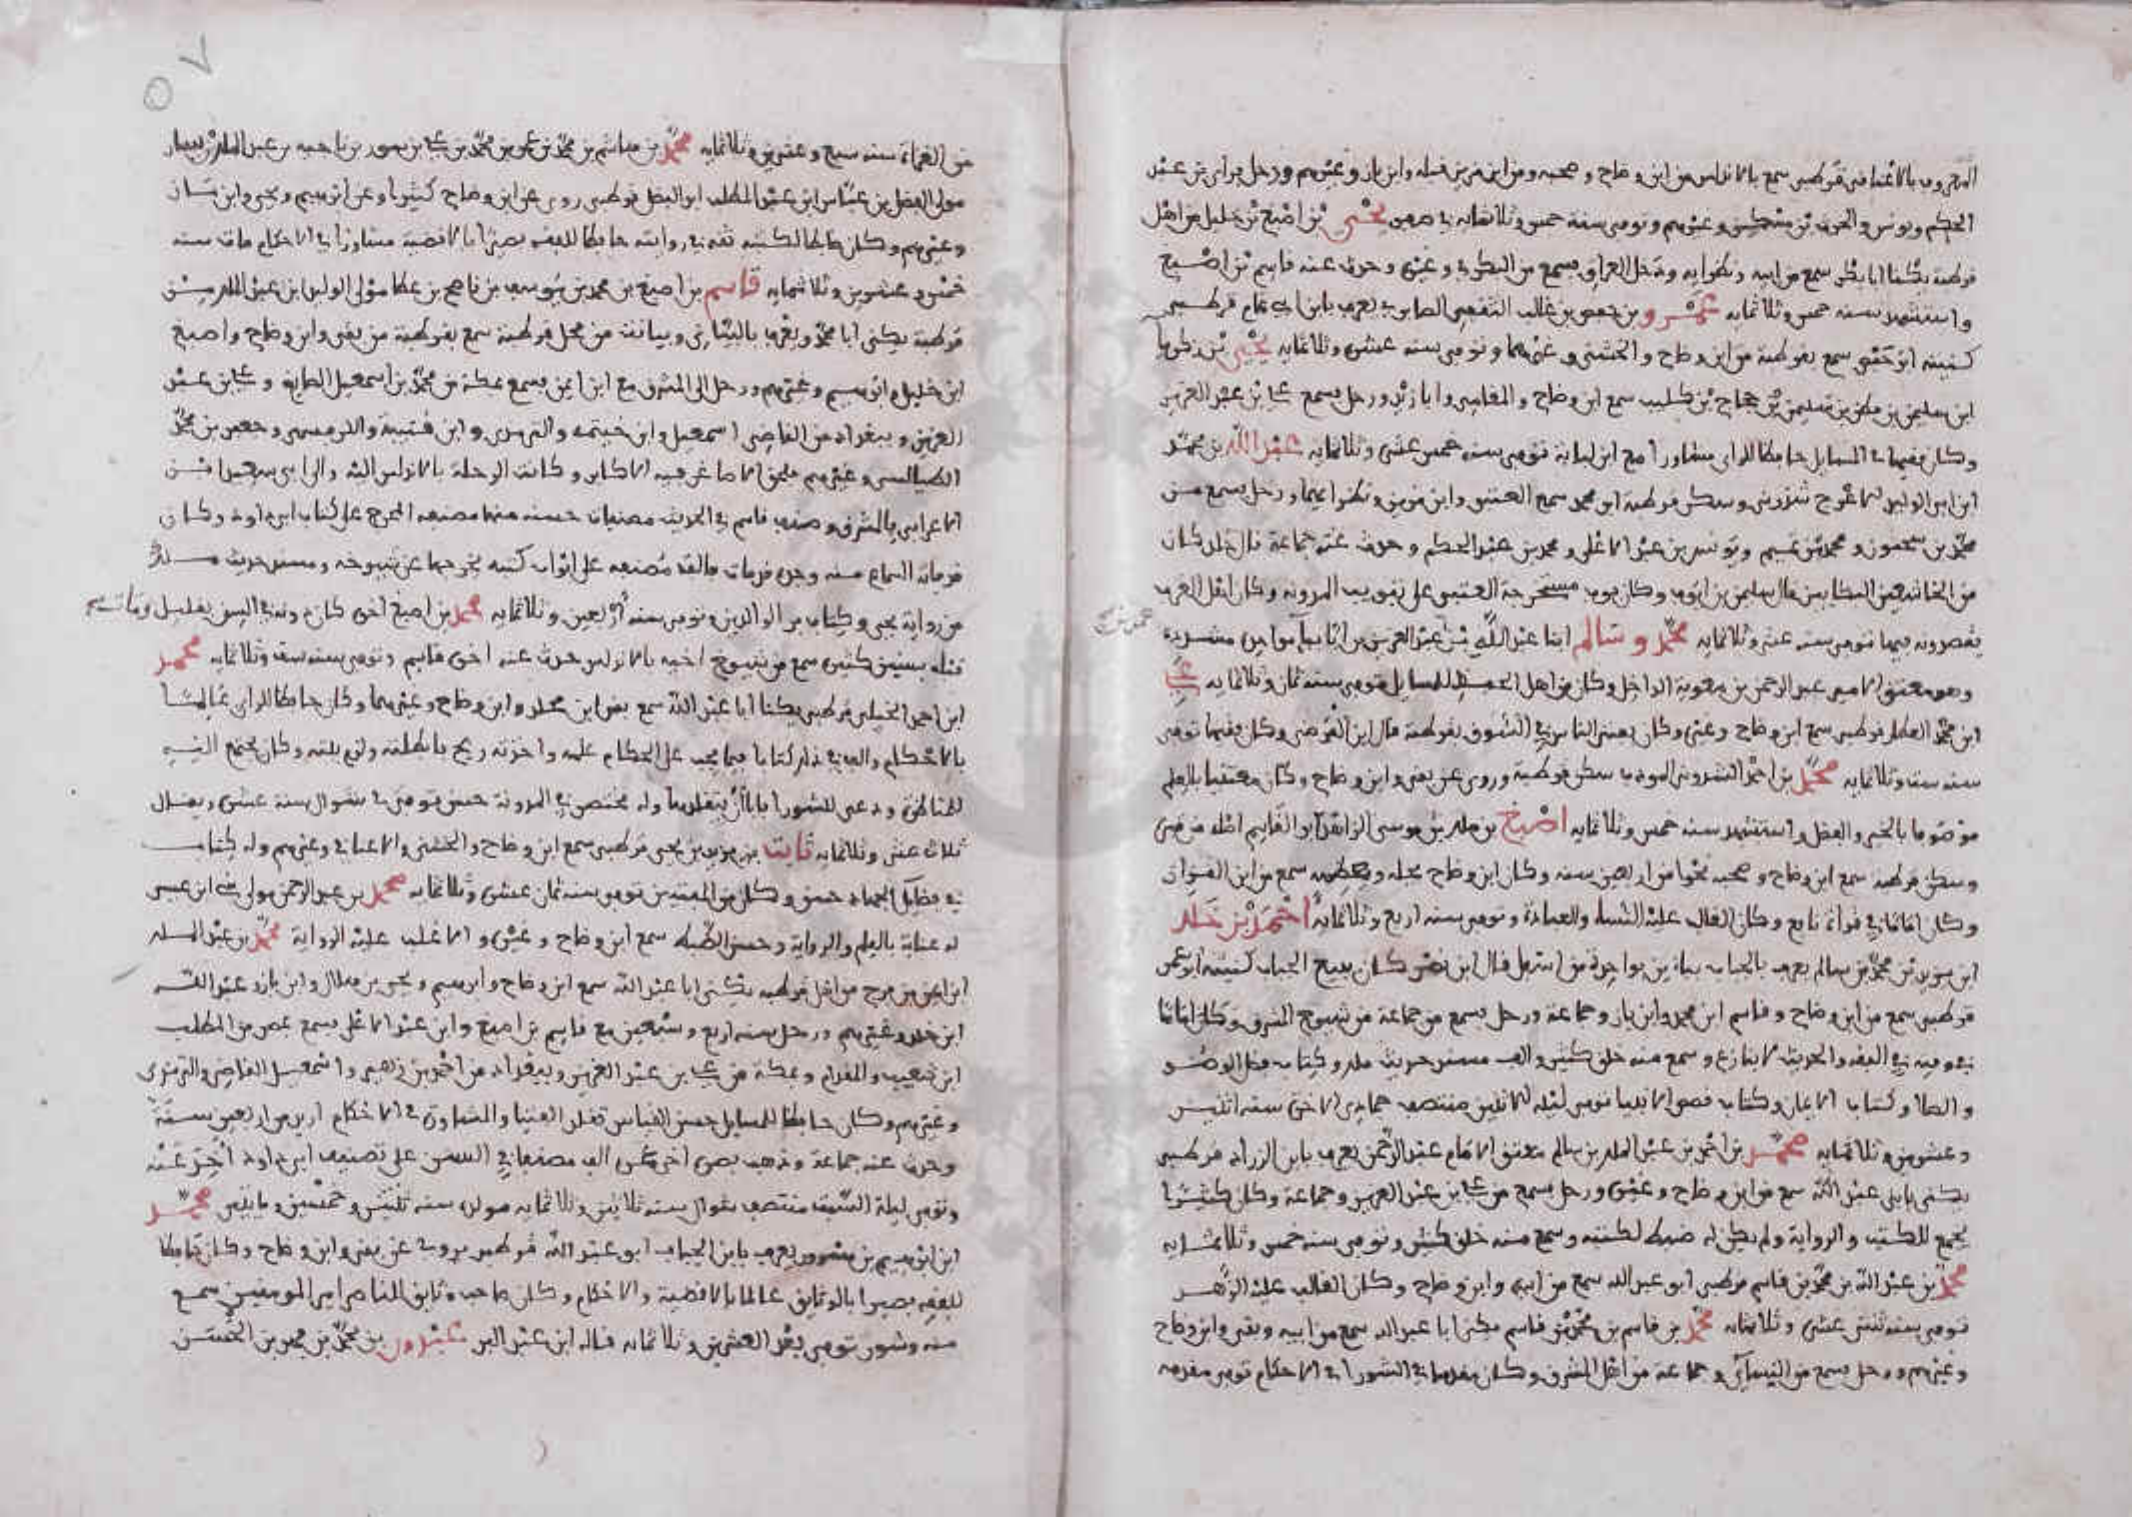 المعروف بالاعناقي قرطبي سمع بالاندلس من ابن وضاح و صحبه ومن ابن مزين قبله وابن باز وغيرهم ورحل فرأى بن عبد
الحكم ويونس والحرث بن مسكين وغيرهم وتوفي سنة خمس وثلاثمايه في صفر يحيى بن اصبغ بن خليل من اهل
قرطبة يكنا ابا بكر سمع من ابيه ونظرايه ودخل العراق فسمع من وغيره وحدث عنه قاسم بن اصبغ
واستشهد سنة خمس وثلاثمايه بن حفص بن غالب الثقفي الصابوني يعرف بابن ابي تمام قرطبي
كنيته ابو حفص سمع بقرطبة من ابن وضاح والخشني وغيرهما وتوفي سنة عشر وثلاثمايه يحيى بن زكريا
ابن سليمن بن فطر بن سليمن بن حجاج بن كليب سمع ابن وضاح والمغامي وابا زيد ورحل فسمع علي بن عبد العزيز
وكان فقيها في المسايل حافظا للراي مشاورا مع ابن لبابة توفي سنة خمس عشرة وثلاثمايه عبد الله بن محمد
ابن ابي الوليد الاعرج شذوني وسكن قرطبة ابو محمد سمع العتبي وابن مزين ونظراءهما ورحل فسمع من
محمد بن سحنون ومحمد بن تميم ويونس بن عبد الاعلى ومحمد بن عبد الحكم وحدث عنه جماعة قال خلد كان
من الخاشعين البكايين قال سليمن بن ايوب وكان يوم مستخرجة العتبي على تبويب المدونة وكان اهل العرب
يقصدونه فيها توفي سنة عشر وثلاثمايه محمد وسالم ابنا عبد الله بن عبد العزيز بن ابا
وهو معتق الامير عبد الرحمن بن معوية الداخل وكان من اهل الحفظ للمسايل توفي سنة ثمان وثلاثمايه علي
ابن محمد العطار قرطبي سمع ابن وضاح وغيره وكان يفتي الناس في السوق بقرطبة قال ابن الفرضي وكان فقيها توفي
سنة ست وثلاثمايه محمد بن احمد الشذوني المودب سكن قرطبة وروى عن بقي وابن وضاح وكان معتنيا بالعلم
موصوفا بالخير والفضل واستشهد سنة خمس وثلاثمايه اصبغ بن ملك بن موسى الزاهد ابو القاسم اصله من قبرة
وسكن قرطبة سمع ابن وضاح وصحبه نحوا من اربعين سنة وكان ابن وضاح يجله ويعظمه سمع من ابن القزاز
وكان اماما في قراة نافع وكان الغالب عليه النسك والعبادة وتوفي سنة اربع وثلاثمايه احمد بن خلد
ابن يزيد بن محمد بن سالم يعرف بالجباب بباء بن بواحدة من اسفل قال ابن نصر كان يبيع الجباب كنيته ابو عمر
قرطبي سمع من ابن وضاح وقاسم ابن محمد وابن باز وجماعة ورحل فسمع من جماعة من شيوخ المشرق وكان اماما
في وقته في الفقه والحديث لا ينازع وسمع منه خلق كثير والف مسند حديث ملك وكتاب فضل الوضو
والصلا وكتاب الايمان وكتاب قصص الانبيا توفي ليلة الاثنين منتصف جمادى الاخرى سنة اثنين
وعشرين وثلاثمايه محمد بن احمد بن عبد الملك بن سالم معتق الامام عبد الرحمن يعرف بابن الزراد قرطبي
يكنى بابي عبد الله سمع من ابن وضاح وغيره ورحل فسمع من علي بن عبد العزيز وجماعة وكان كثيرا
يجمع للكتب والرواية ولم يكن له ضبط لكتبه وسمع منه خلق كثير وتوفي سنة خمس وثلاثمايه
محمد بن عبد الله بن محمد بن قاسم قرطبي ابو عبد الله سمع من ابيه وابن وضاح وكان الغالب عليه الزهد
توفي سنة ثنتي عشرة وثلاثمايه محمد بن قاسم بن محمد بن قاسم يكنى ابا عبد الله سمع من ابيه وبقي وابن وضاح
وغيرهم ورحل فسمع من النسائي وجماعة من اهل المشرق وكان مقدما في الشورا في الاحكام توفي مقدمه
٥٧
من الغزاة سنة سبع وعشرين وثلاثمايه محمد بن هاشم بن محمد بن عمر بن محمد بن علي بن بن ناجيه بن عبد الملك بن يسار
مولى الفضل بن عباس ابن عبد المطلب ابو الفضل قرطبي روى عن ابن وضاح كثيرا وعن ابرهيم ويحيى وابن شان
وغيرهم وكان ضابطا لكتبه ثقة في روايته حافظا للفقه بصيرا بالاقضية مشاورا في الاحكام مات سنة
خمس وعشرين وثلاثمايه قاسم بن اصبغ بن محمد بن يوسف بن ناصح بن عطا مولى الوليد ابن عبد الملك من
قرطبة يكنى ابا محمد ويعرف بالبياني وبيانة من عمل قرطبة سمع بقرطبة من بقي وابن وضاح واصبغ
ابن خليل وابرهيم وغيرهم ورحل الى المشرق مع ابن ايمن فسمع بمكة من محمد بن اسمعيل الصايغ وعلي بن عبد
العزيز وببغداد من القاضي اسمعيل وابن خيثمة والترمذي وابن قتيبة وجعفر بن محمد
الطيالسي وغيرهم الاصاغر فيه الاكابر وكانت الرحلة بالاندلس اليه والى ابي سعيد ابن
الاعرابي بالمشرق وصنف قاسم في الحديث مصنفات حسنة منها مصنفه المخرج على كتاب ابي داود وكان
السماع منه فالف مصنفه على ابواب كتبه خرجها عن شيوخه ومسند حديث ملك
من رواية يحيى وكتاب بر الوالدين وتوفي سنة اربعين وثلاثمايه محمد بن اصبغ اخوه كان دونه في السن بقليل ومات
قبله بسنين كثيرة سمع من شيوخ اخيه بالاندلس حدث عنه اخوه قاسم وتوفي سنة ست وثلاثمايه محمد
ابن احمد الجبلي قرطبي يكنا ابا عبد الله سمع بقي ابن مخلد وابن وضاح وغيرهما وكان حافظا للراي عالما
بالاحكام والف في ذلك كتابا فيما يجب على الحكام علمه واخذته ريح فابطلته ولزم بيته وكان يجتمع اليه
للمناظرة ودعي للشورا فابا ان يتقلدها وله مختصر في المدونة حسن توفي في شوال سنة عشر ويقال
ثلاث عشرة وثلاثمايه ثابت بن يزيد بن يحيى قرطبي سمع ابن وضاح والخشني والاعناقي وغيرهم وله كتاب
في فضايل الجهاد حسن وكان من المفتين توفي سنة ثمان عشرة وثلاثمايه محمد بن عبد الرحمن مولى
له عناية بالعلم والرواية وحسن الضبط سمع ابن وضاح وغيره والاغلب عليه الرواية محمد بن عبد الملك
ابن ايمن بن فرج من اهل قرطبة يكنى ابا عبد الله سمع ابن وضاح وابرهيم ويحيى بن هلال وابن باز وعبد الله
ابن خلد وغيرهم ورحل سنة اربع وسبعين مع قاسم بن اصبغ وابن عبد الاعلى فسمع بمصر من المطلب
ابن شعيب والمقدام وبمكة من علي بن عبد العزيز وببغداد من احمد بن زهير واسمعيل القاضي والترمذي
وغيرهم وكان حافظا للمسايل حسن القياس تقلد الفتيا والمشاورة في الاحكام ازيد من اربعين سنة
وحدث عنه جماعة وذهب بصره اخر عمره الف مصنفا في السنن على تصنيف ابي داود اخذ عنه
وتوفي ليلة السبت منتصف شوال سنة ثلاثين وثلاثمايه مولده سنة ثنتين وخمسين ومايتين محمد
ابن ابرهيم بن مسرور يعرف بابن الجباب ابو عبد الله قرطبي يروي عن بقي وابن وضاح وكان حافظا
للفقه بصيرا بالوثايق عالما بالاقضية والاحكام وكان صاحب وثايق الناصر امير المومنين سمع
منه وشوور توفي بعد العشرين وثلاثمايه قاله ابن عبد البر عبدون بن محمد بن فهد بن الحسن